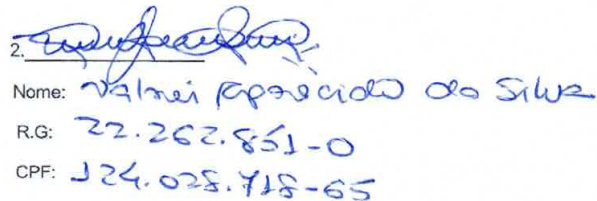 2.
Nome: Valnei Aparecido da Silva
R.G: 22.262.851-0
CPF: 124.028.718-65